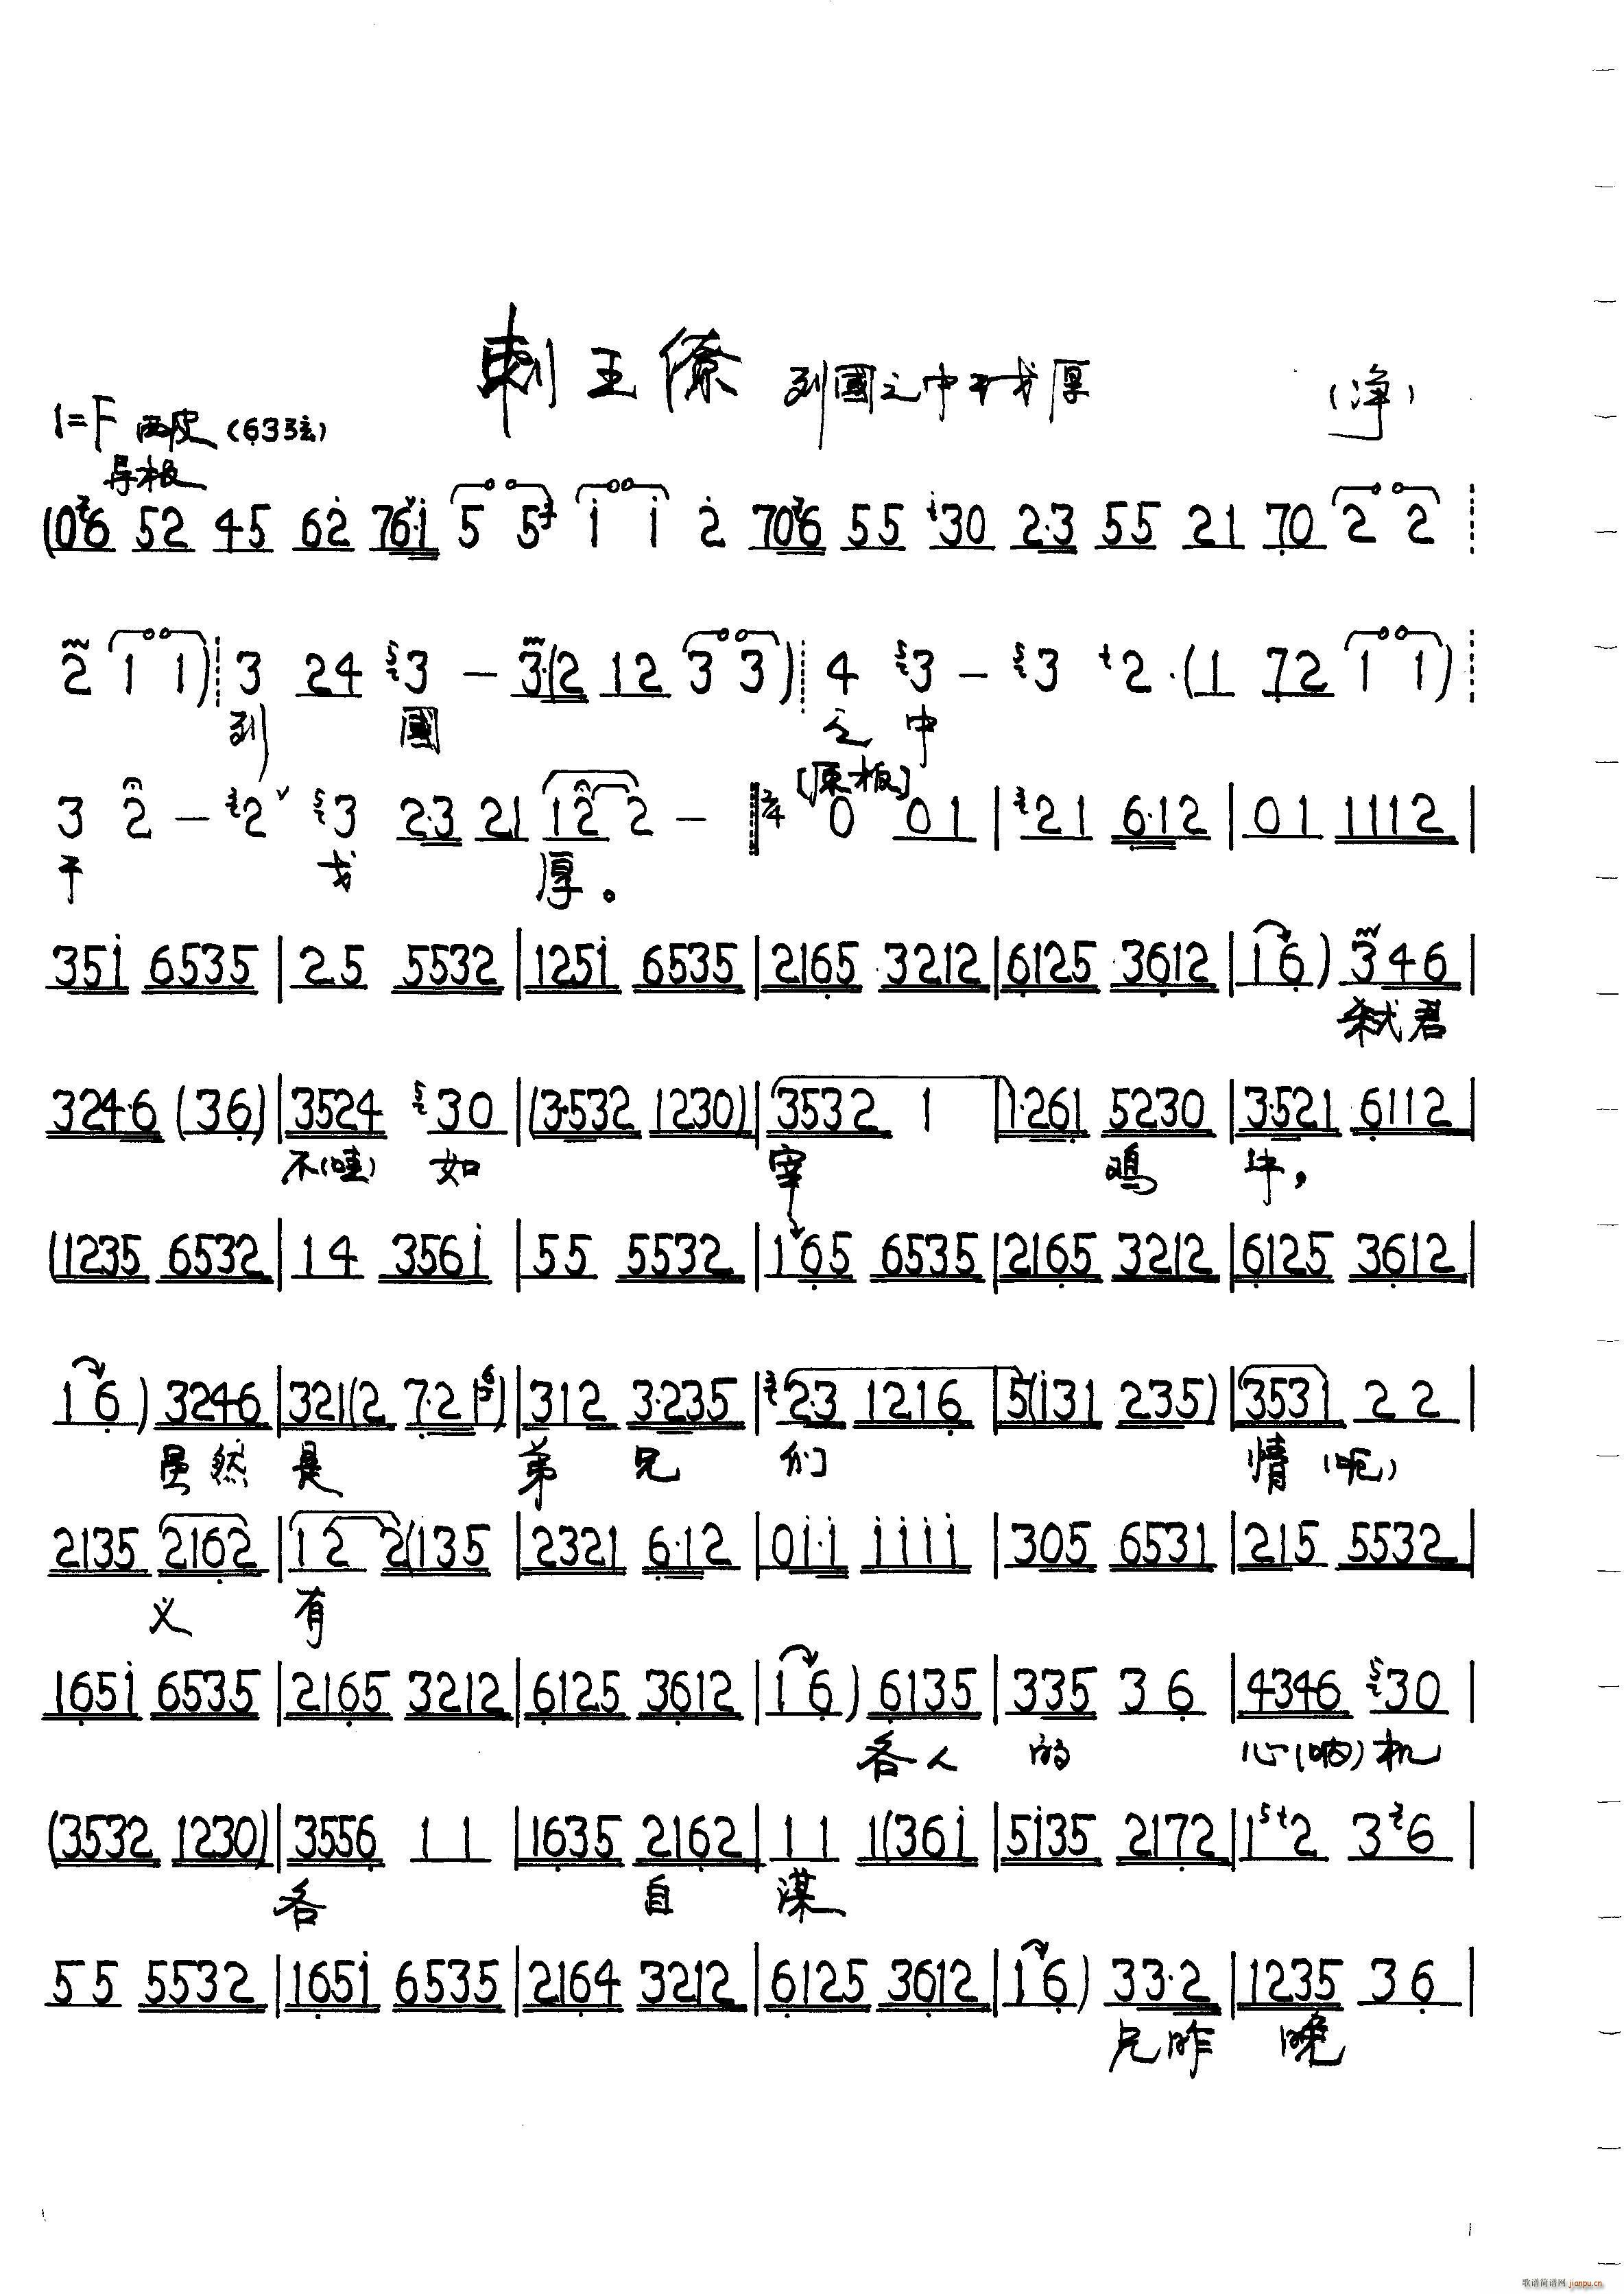 刺王僚 列國之中干戈厚 (净)
1=F 西皮 (63弦)
导板
(06 52 45 62̇ 76·1̇ 5 5 1̇ 1̇ 2̇ 706 55 30 2·3 55 21 70 2 2
2 1 1) 3 24 3 — 3·(2 12 3 3) 4 3 — 3 2·(1 72 1 1)
列 國 之 中
[原板]
3 2 — 2 ˇ 3 2·3 21 12 2 — 2/4 0 01 | 21 6·12 | 01 1112 |
干 戈 厚。
351̇ 6535 | 2 5 5532 | 1251̇ 6535 | 2165 3212 | 6125 3612 | 1 6) 346 |
弑君
324·6 (36) | 3524 30 | (3·532 1230) | 3532 1 | 1·261 5230 | 3·521 6112 |
不(哇) 如 宰 鸡 牛,
(1235 6532 | 14 3561̇ | 55 5532 | 165 6535 | 2165 3212 | 6125 3612 |
1 6) 3246 | 321(2 7·2 1) | 312 3·235 | 2·3 1216 | 5(1̇31 235) | 3531 2 2 |
虽然 是 弟 兄 们 情 (呃)
2135 2162 | 12 2(135 | 2321 6·12 | 01̇·1̇ 1̇1̇1̇1̇ | 305 6531 | 215 5532 |
义 有
1651̇ 6535 | 2165 3212 | 6125 3612 | 1 6) 6135 | 335 3 6 | 4346 30 |
各人 的 心(呐)机
(3532 1230) | 3556 1 1 | 1635 2162 | 1 1 1(361̇ | 51̇35 2172 | 1 2 3 6 |
各 自 谋
55 5532 | 1651̇ 6535 | 2164 3212 | 6125 3612 | 1 6) 33·2 | 1235 3 6 |
兄昨 晚
歌谱简谱网 jianpu.cn